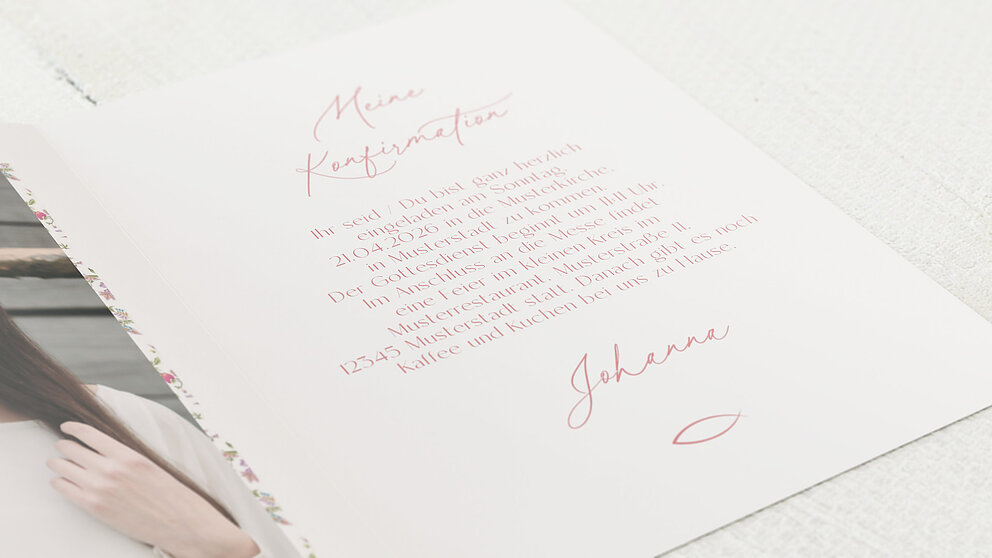 Meine
Konfirmation
Ihr seid / Du bist ganz herzlich
eingeladen am Sonntag,
21.04.2026 in die Musterkirche,
in Musterstadt zu kommen.
Der Gottesdienst beginnt um 11:11 Uhr.
Im Anschluss an die Messe findet
eine Feier im kleinen Kreis im
Musterrestaurant, Musterstraße 11,
12345 Musterstadt statt. Danach gibt es noch
Kaffee und Kuchen bei uns zu Hause.
Johanna